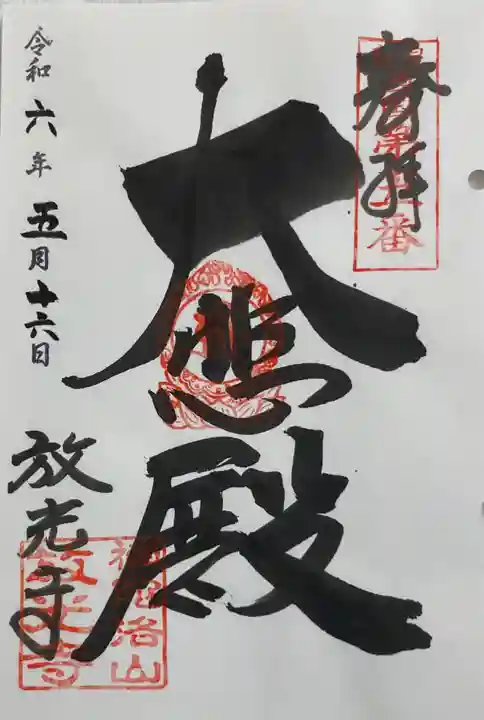 奉拝
大悲殿
令和六年五月十六日
放光寺
放光寺